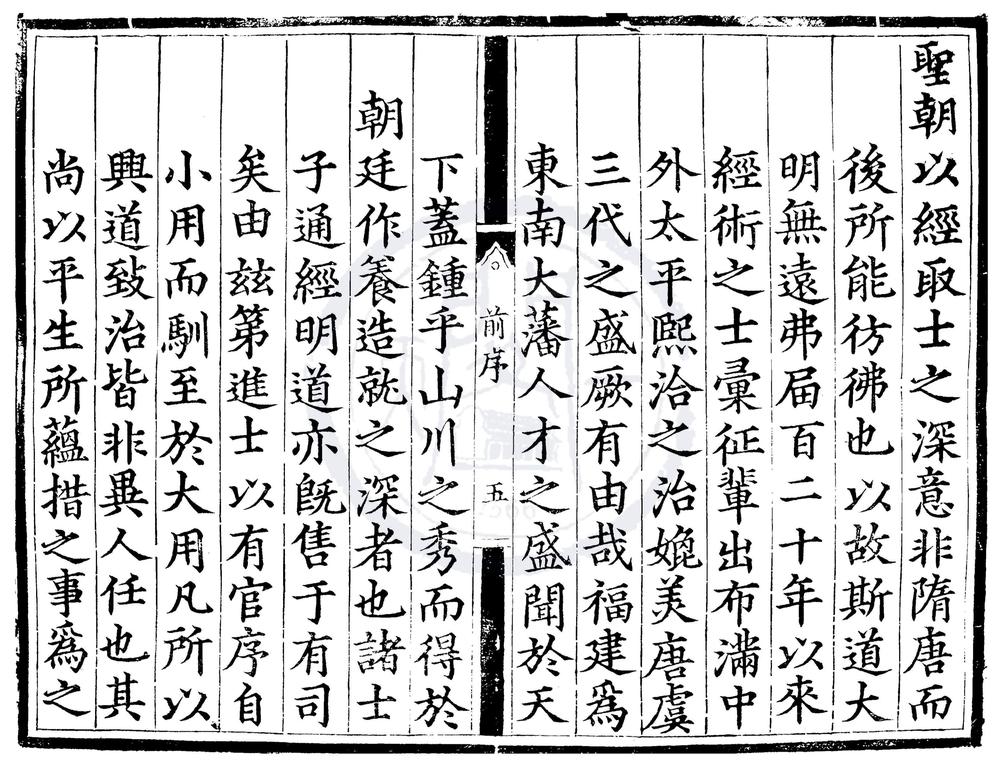 聖朝以經取士之深意非隋唐而
後所能彷彿也以故斯道大
明無遠弗届百二十年以來
經術之士彙征輩出布滿中
外太平熙洽之治媲美唐虞
三代之盛厥有由哉福建爲
東南大藩人才之盛聞於天
前序
五
下蓋鍾乎山川之秀而得於
朝廷作養造就之深者也諸士
子通經明道亦旣售于有司
矣由兹第進士以有官序自
小用而馴至於大用凡所以
興道致治皆非異人任也其
尚以平生所蘊措之事爲之